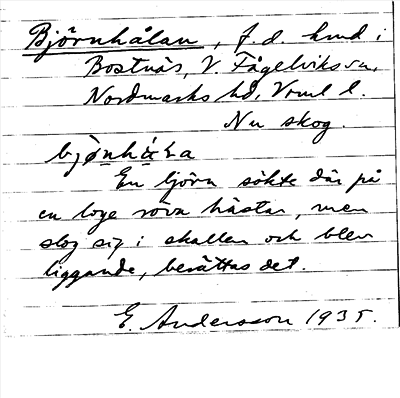 Björnhålan, f.d. hmd i
Bostnäs, V. Fågelviks sn,
Nordmarks hd, Vrml l.
Nu skog.
En björn sökte där på
en loge röva hästar, men
slog sig i skallen och blev
liggande, berättas det.
E. Andersson 1935.